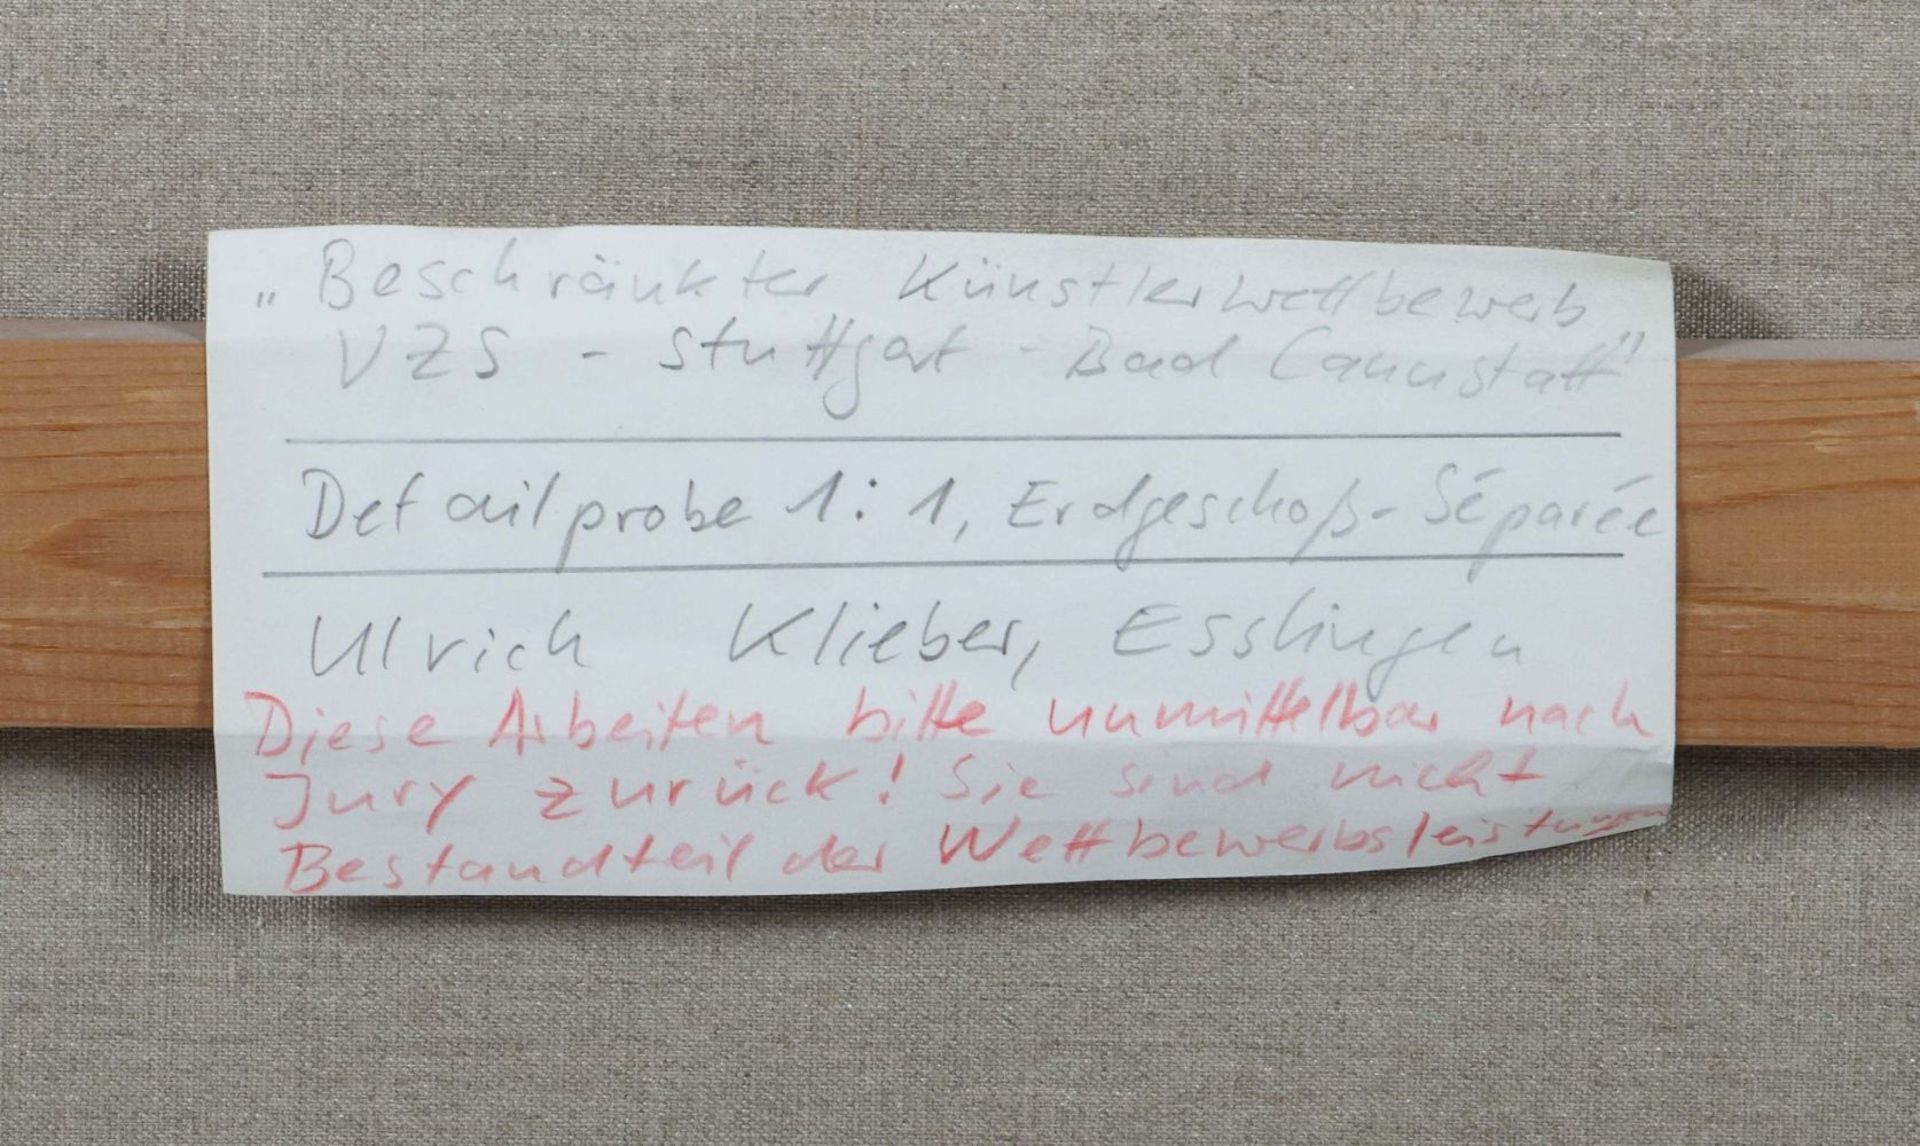 „Beschränkter Künstlerwettbewerb
VZS - Stuttgart - Bad Cannstatt"
Detailprobe 1:1, Erdgeschoß-Séparée
Ulrich Klieber, Esslingen
Diese Arbeiten bitte unmittelbar nach
Jury zurück! Sie sind nicht
Bestandteil der Wettbewerbsleistungen